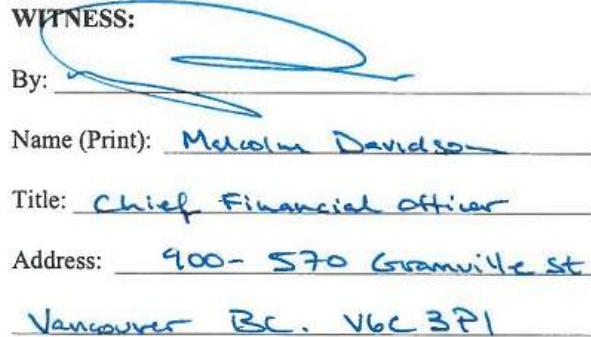 WITNESS:
By:
Name (Print): Malcolm Davidson
Title: Chief Financial Officer
Address: 900- 570 Granville St
Vancouver BC. V6C 3P1